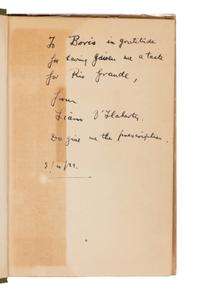 To Boris in gratitude
for having given me a taste
for Rio Grande,
from
Liam O'Flaherty.
Do give me the prescription.